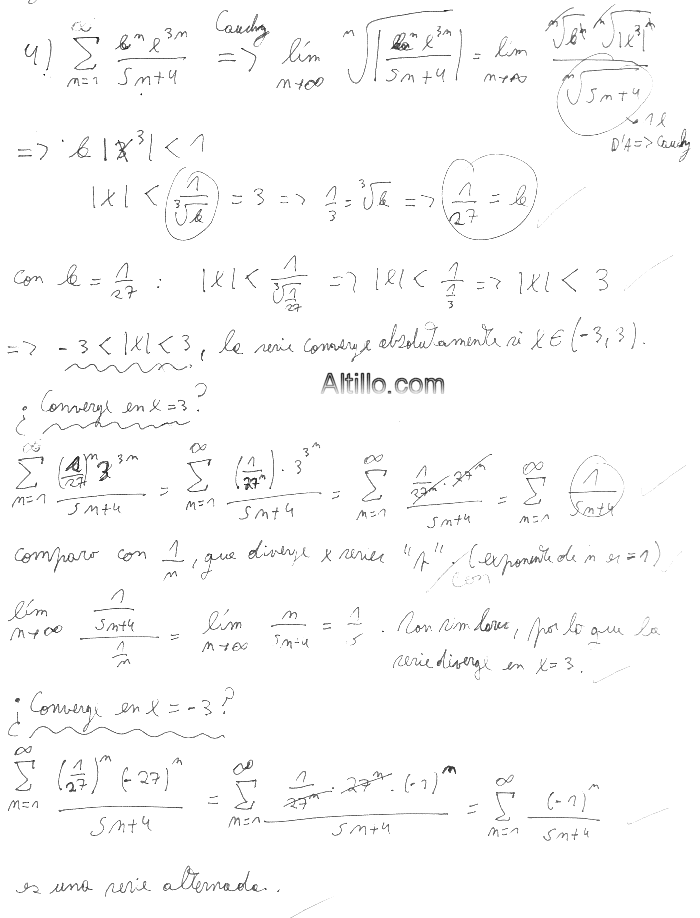 4) ∑_{n=1}^{∞} b^n x^{3n} / (5n+4) Cauchy => lím_{n→∞} ⁿ√|b^n x^{3n} / (5n+4)| = lim_{n→∞} ⁿ√b^n ⁿ√|x^3|^n / ⁿ√(5n+4)
↘ 1
D'A => Cauchy
=> b |x^3| < 1
|x| < 1/∛b = 3 => 1/3 = ∛b => 1/27 = b
con b = 1/27 : |x| < 1/∛(1/27) => |x| < 1/(1/3) => |x| < 3
=> -3 < |x| < 3, la serie converge absolutamente si x ∈ (-3, 3).
Altillo.com
¿Converge en x=3?
∑_{n=1}^{∞} (1/27)^n 3^{3n} / (5n+4) = ∑_{n=1}^{∞} (1/27^n) · 3^{3n} / (5n+4) = ∑_{n=1}^{∞} 1/27^n · 27^n / (5n+4) = ∑_{n=1}^{∞} 1/(5n+4)
comparo con 1/n, que diverge x series "p". (exponente de n es = 1)
con
lím_{n→∞} (1/(5n+4)) / (1/n) = lím_{n→∞} n/(5n+4) = 1/5 . Son similares, por lo que la
serie diverge en x=3.
¿Converge en x=-3?
∑_{n=1}^{∞} (1/27)^n (-27)^n / (5n+4) = ∑_{n=1}^{∞} 1/27^n · 27^n · (-1)^n / (5n+4) = ∑_{n=1}^{∞} (-1)^n / (5n+4)
es una serie alternada.